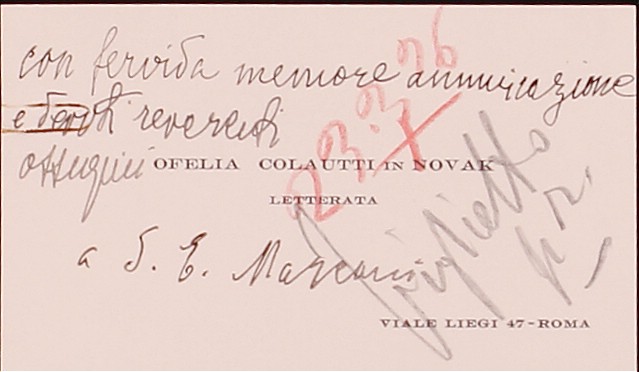 con fervida memore ammirazione
e devoti reverenti
ossequi
23.3.36
OFELIA COLAUTTI IN NOVAK
LETTERATA
a S. E. Marconi
biglietto
p. r.
VIALE LIEGI 47-ROMA